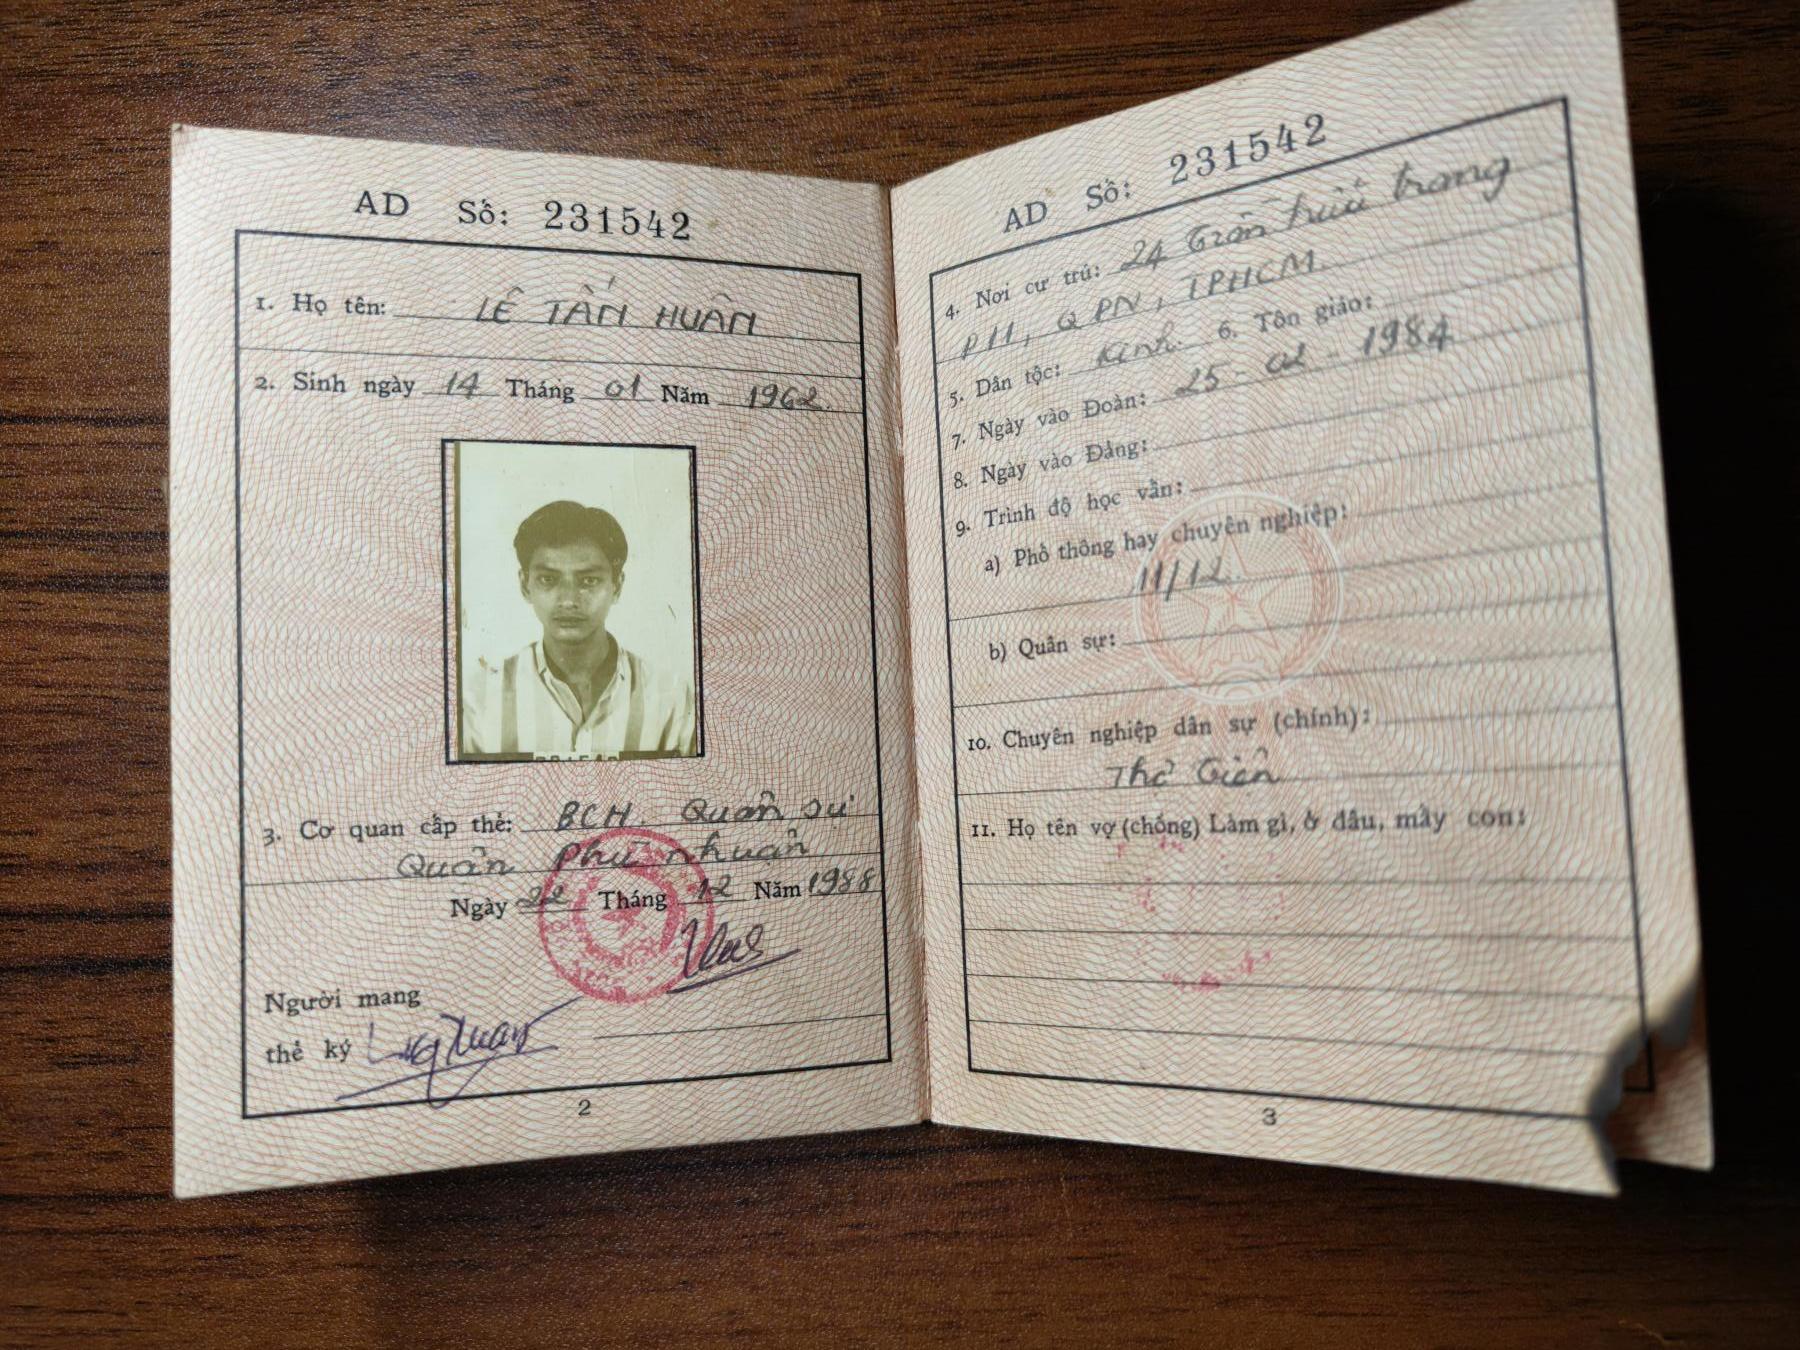 AD Số: 231542
1. Họ tên: LÊ TẤN HUÂN
2. Sinh ngày 14 Tháng 01 Năm 1962.
3. Cơ quan cấp thẻ: BCH. Quân sự
Quận Phú nhuận
Ngày 22 Tháng 12 Năm 1988
Người mang
thẻ ký
2
AD Số: 231542
4. Nơi cư trú: 24 trần hữu trang
P11, Q PN, TPHCM.
5. Dân tộc: Kinh. 6. Tôn giáo:
7. Ngày vào Đoàn: 25 - 02 - 1984
8. Ngày vào Đảng:
9. Trình độ học vấn:
a) Phổ thông hay chuyên nghiệp:
11/12.
b) Quân sự:
10. Chuyên nghiệp dân sự (chính):
Thợ
11. Họ tên vợ (chồng) Làm gì, ở đâu, mấy con:
3